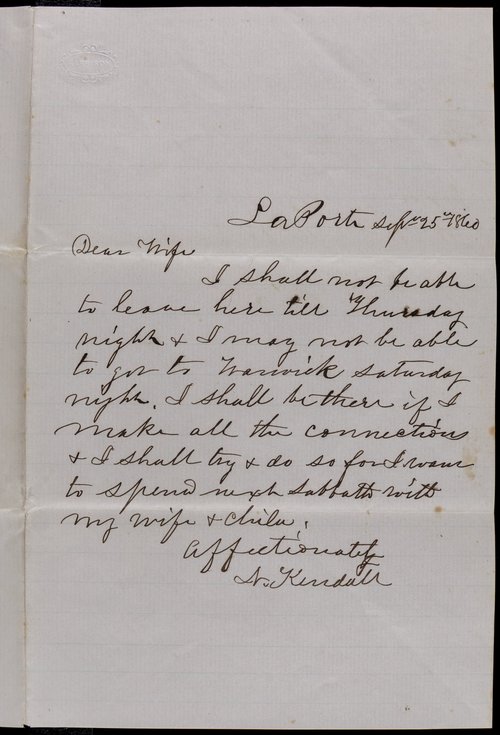 LaPorte Sept 25th 1860
Dear Wife
I shall not be able
to leave here till Thursday
night & I may not be able
to get to Warwick Saturday
night. I shall be there if I
make all the connections
& I shall try & do so for I want
to spend next Sabbath with
my wife & child.
Affectionately
N. Kendall